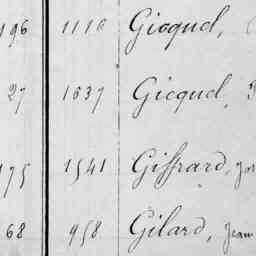 196 1116 Gicquel,
27 1637 Gicquel,
175 1541 Giffrard,
68 958 Gilard, Jean